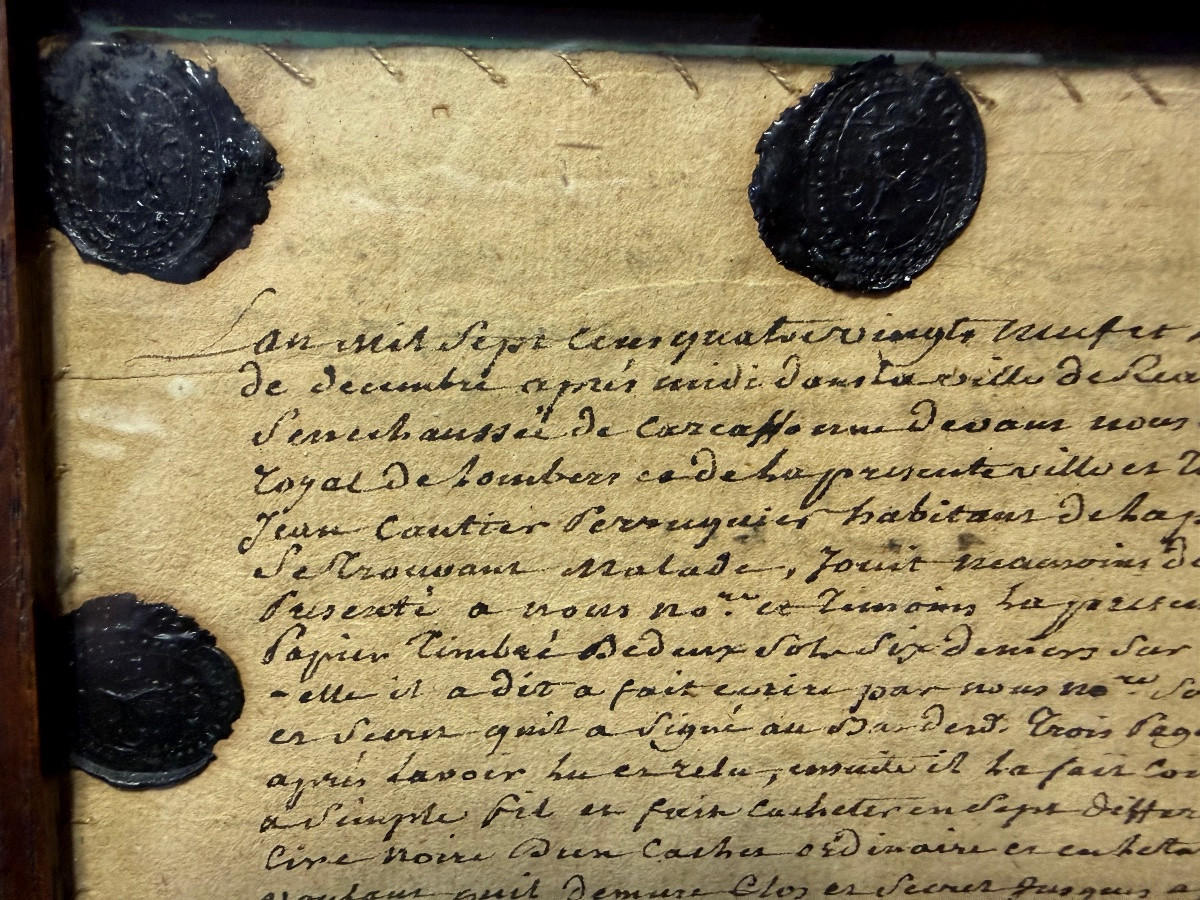 Lan mil Sept Cens quatre vingts neuf et
de decembre aprés midi dans la ville de Rea
Senechaussée de Carcassonne devant nous
Royal de Lombers et de la presente ville et
Jean Cautier Perruquier habitant de la p
Se Trouvant Malade, Jouit neanmoins de
Presenté a nous no.re et Temoins la presen
Papier Timbré de deux Sols Six deniers Sur
-elle il a dit a fait ecrire par nous no.re So
et Secret quil a Signé au Bas de Trois Pag
aprés lavoir lu et relu, ensuite il la fait Cou
a Simple fil et fait Cacheter en Sept differ
Cire noire Dun Cachet ordinaire et en letta
voulant quil demure Clos et Secret Jusques a